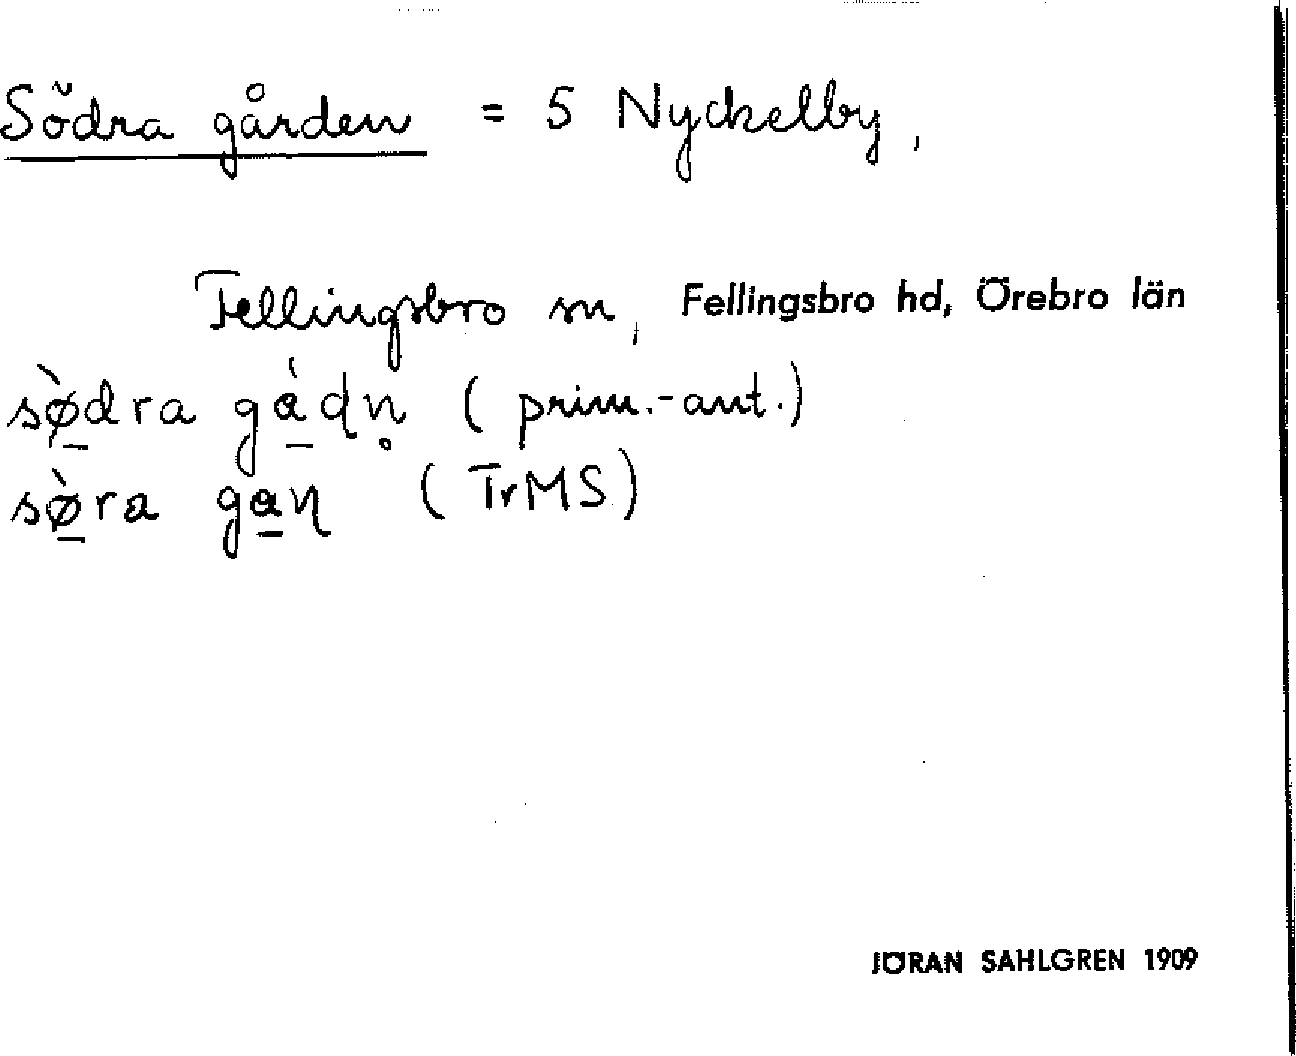 Södra gården = S Nyckelby,
Fellingsbro sn, Fellingsbro hd, Örebro län
sø̀dra gádn̥ (prim.-ant.)
sø̀ra gaɳ (TrMS)
JÖRAN SAHLGREN 1909